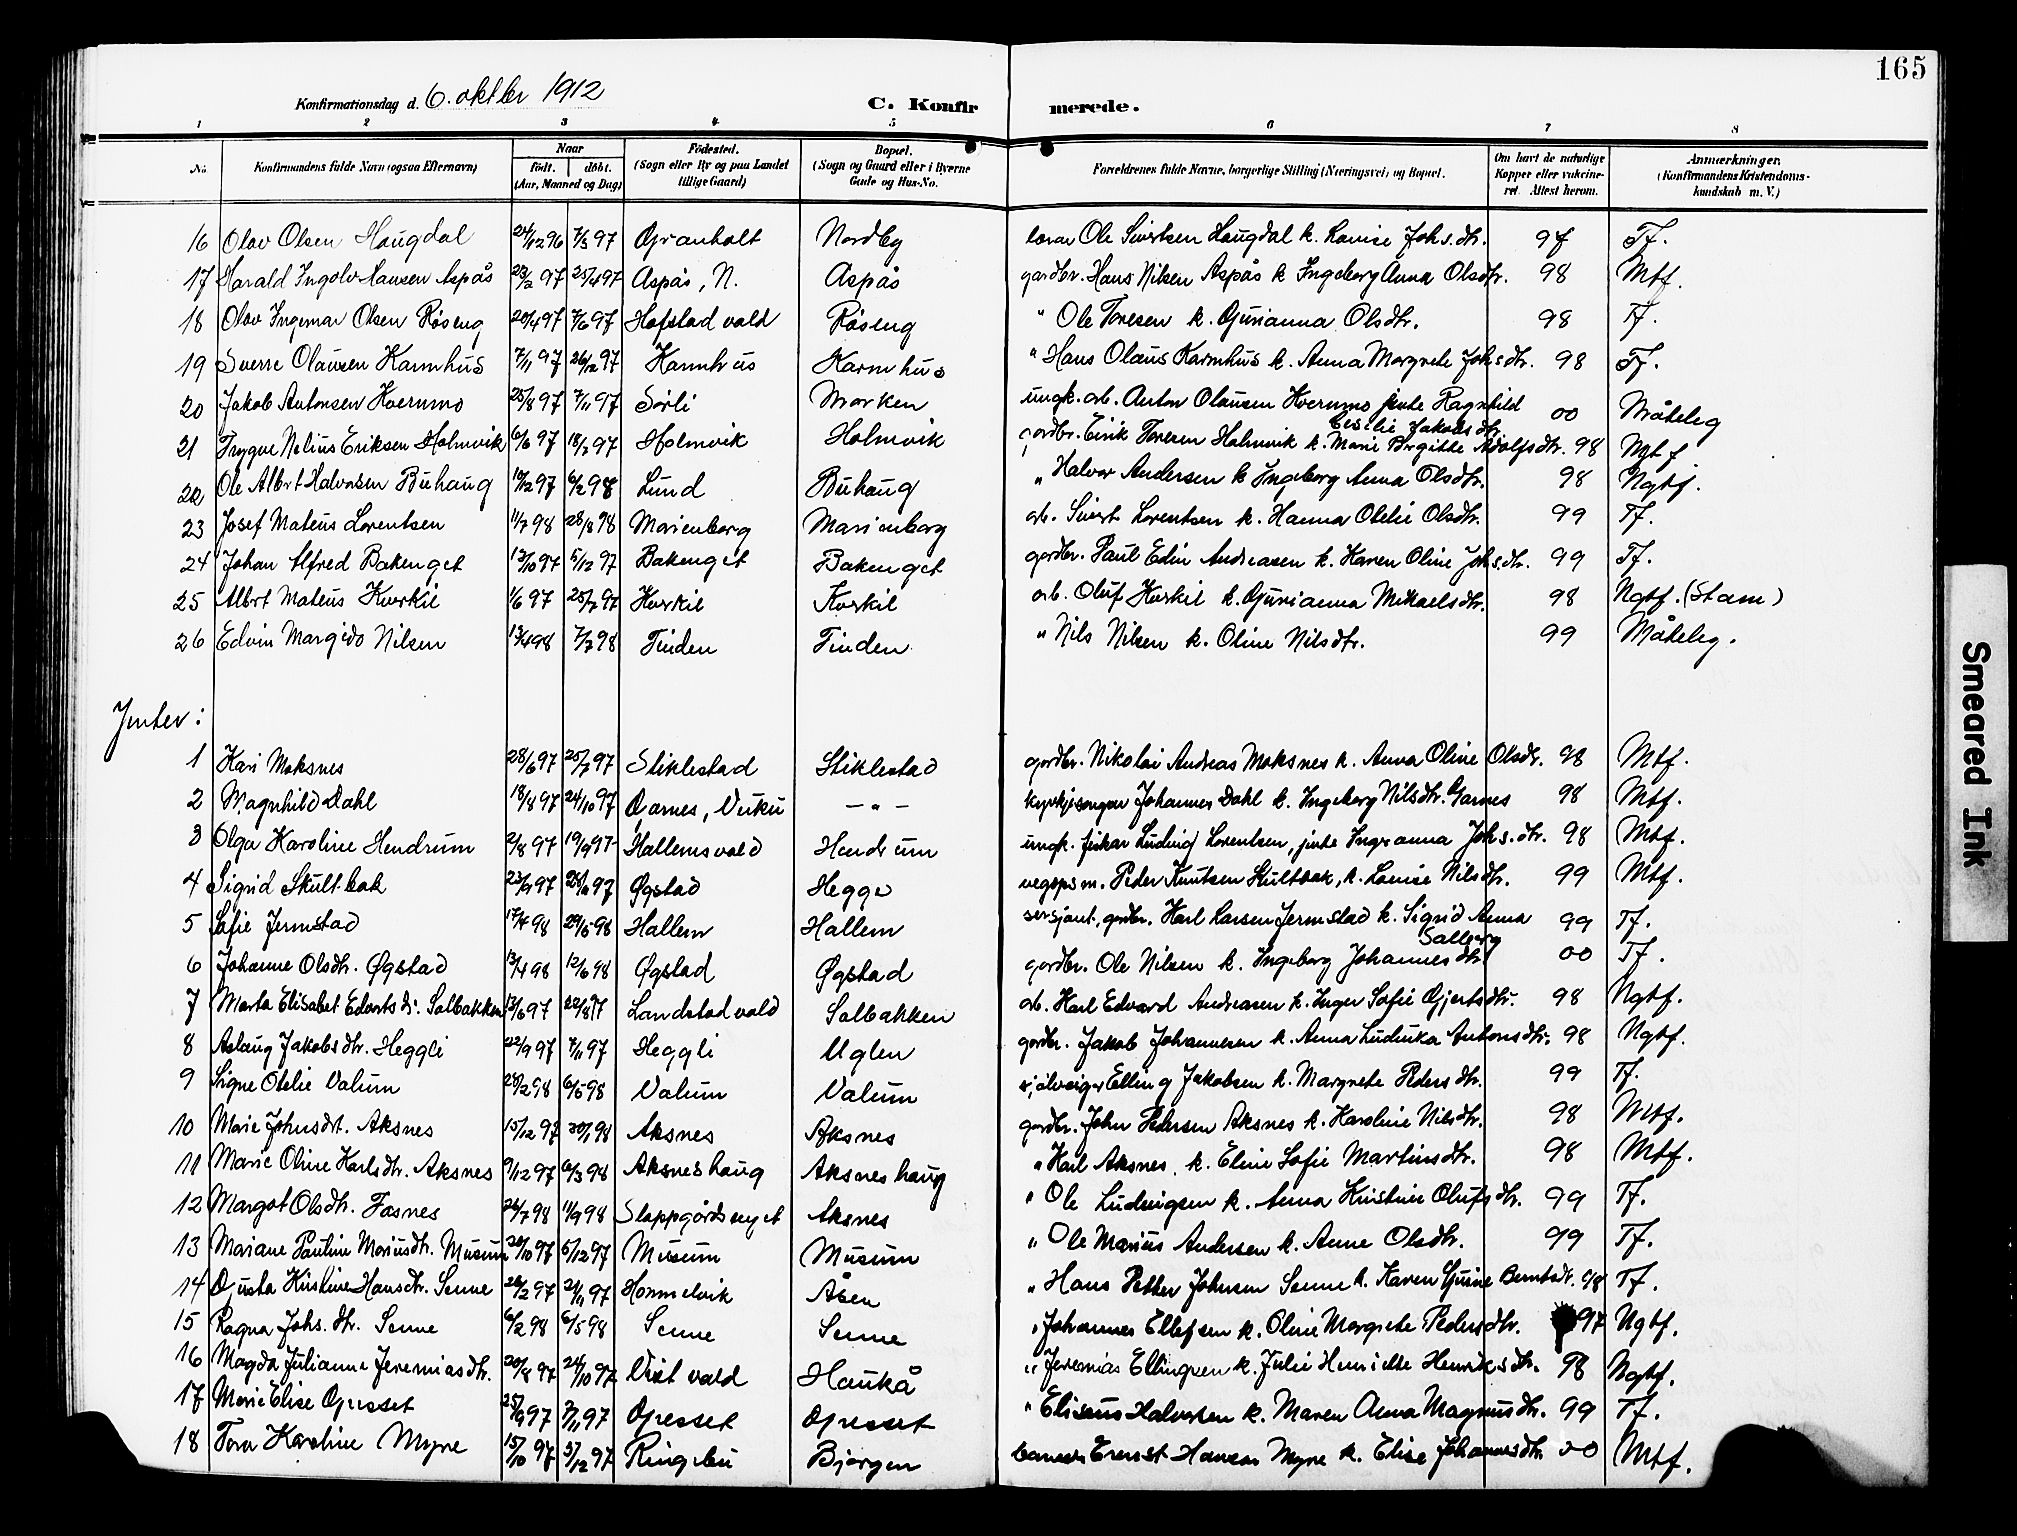 165
Konfirmationsdag d. 6. oktbr 1912 C. Konfirmerede.
1 2 3 4 5 6 7 8
No. Konfirmandens fulde Navn (ogsaa Efternavn) Naar født. døbt. (Aar, Maaned og Dag) Fødested. (Sogn eller By og paa Landet tillige Gaard) Bopæl. (Sogn og Gaard eller i Byerne Gade og Hus-No. Forældrenes fulde Navne, borgerlige Stilling (Næringsvei) og Bopæl. Om havt de naturlige Kopper eller vakcineret. Attest herom. Anmærkninger. (Konfirmandens Kristendomskundskab m. V.)
16 Olav Olsen Haugdal 24/12 96 7/3 97 Granholt Nordby lærar Ole Sivertsen Haugdal k. Lovise Johs.dtr. 97 Tf.
17 Harald Ingolv Hansen Aspås 23/2 97 25/4 97 Aspås, N. Aspås gardbr. Hans Nilsen Aspås k Ingeborg Anna Olsdtr. 98 Mtf.
18 Olav Ingemar Olsen Røseng 20/4 97 7/6 97 Hofstad vald Røseng " Ole Toresen k. Gurianna Olsdtr. 98 Tf.
19 Sverre Olausen Karmhus 7/11 97 26/12 97 Karmhus Karmhus " Hans Olaus Karmhus k. Anna Margrete Johsdtr. 98 Tf.
20 Jakob Antonsen Kvernmo 25/8 97 7/11 97 Sørli Marken ungk. arb. Anton Olausen Kvernmo jente Ragnhild Cecilie Jakobsdtr. 00 Måteleg
21 Trygve Nelius Eriksen Holmvik 6/6 97 18/7 97 Holmvik Holmvik gardbr. Eirik Toresen Holmvik k. Marie Birgitte Adolfsdtr. 98 Ngtf
22 Ole Albert Halvorsen Buhaug 10/12 97 6/2 98 Lund Buhaug " Halvor Andersen k Ingeborg Anna Olsdtr. 98 Ngtf.
23 Josef Mateus Lorentsen 11/7 98 28/8 98 Marienborg Marienborg arb. Sivert Lorentsen k. Hanna Otelie Olsdtr. 99 Tf.
24 Johan Alfred Bakenget 12/10 97 5/12 97 Bakenget Bakenget gardbr. Paul Edin Andreasen k. Karen Oline Johs.dtr. 99 Tf.
25 Albrt Mateus Kverkil 1/6 97 25/7 97 Kverkil Kverkil arb. Oluf Kverkil k. Gurianna Mikaelsdtr. 98 Ngtf. (Stam)
26 Edvin Margido Nilsen 13/4 98 7/7 98 Tinden Tinden " Nils Nilsen k. Oline Nilsdtr. 99 Måteleg.
Jenter:
1 Kari Moksnes 28/6 97 25/7 97 Stiklestad Stiklestad gardbr. Nikolai Andreas Moksnes k. Anna Oline Olsdr. 98 Mtf.
2 Magnhild Dahl 18/8 97 24/10 97 Garnes, Vuku — " — kyrkjesongar Johannes Dahl k. Ingeborg Nilsdtr. Garnes 98 Mtf.
3 Olga Karoline Hendrum 2/8 97 19/9 97 Hallemsvald Hendrum ungk. fiskar Ludvig Lorentsen, jente Ingeranna Johs.dtr. 98 Mtf.
4 Sigrid Skultbak 23/9 97 Øgstad Hegge vegopsm. Peder Knutsen Skultbak, k. Lovise Nilsdtr. 99 Mtf.
5 Sofie Jermstad 17/4 98 29/5 98 Hallem Hallem sersjant, gardbr. Karl Larsen Jermstad k. Sigrid Anna Salberg 99 Tf.
6 Johanne Olsdtr. Øgstad 13/4 98 12/6 98 Øgstad Øgstad gardbr. Ole Nilsen k. Ingeborg Johannesdtr. 00 Tf.
7 Marta Elisabet Edvartsdr. Solbakken 13/6 97 22/8 97 Landstad vald Solbakken arb. Karl Edvard Andreasen k. Inger Sofie Gjertsdtr. 98 Ngtf.
8 Aslaug Jakobsdtr. Heggli 22/9 97 7/11 97 Heggli Uglen gardbr. Jakob Johannesen k. Anna Ludvika Antonsdtr. 98 Ngtf.
9 Signe Otelie Valum 28/2 98 6/5 98 Valum Valum sjølveiger Elling Jakobsen k. Margrete Pedersdtr. 99 Tf.
10 Marie Johnsdrt. Aksnes 15/12 97 30/1 98 Aksnes Aksnes gardbr. John Pedersen Aksnes k. Karoline Nilsdtr. 98 Mtf.
11 Marie Oline Karlsdtr. Aksnes 9/12 97 6/3 98 Aksneshaug Aksneshaug " Karl Aksnes k. Eline Sofie Martinsdtr. 98 Mtf.
12 Margot Olsdtr. Fæsnes 26/7 98 11/9 98 Aksnes " Ole Ludvigsen k. Anna Kristine Olufsdtr. 99 Tf.
13 Mariane Pauline Mariusdtr. Musum 20/10 97 5/12 97 Musum Musum " Ole Marius Andersen k. Anne Olsdtr. 99 Tf.
14 Gusta Kristine Hansdtr. Senne 97 21/11 97 Hommelvik Åsen " Hans Petter Johnsen Senne k. Karen Gurine Berntsdtr. 98 Tf.
15 Ragna Johs.dtr. Senne 6/2 98 6/5 98 Senne Senne " Johannes Ellefsen k. Oline Margrete Pedersdtr. 97 Ngtf.
16 Magda Julianne Jeremiasdtr. 20/8 97 24/10 97 Vist vald Haukå " Jeremias Ellingsen k. Julie Henriette Henriksdtr. 98 Ngtf.
17 Marie Elise Gresset 25/9 97 7/11 97 Gresset Gresset " Eliseus Halvorsen k. Maren Anna Magnusdtr. 99 Tf.
18 Tora Karoline Myre 15/10 97 5/12 97 Ringebu Bjørgen Erenst Hansen Myre k. Elise Johannesdtr. 00 Mtf.
Smeared Ink